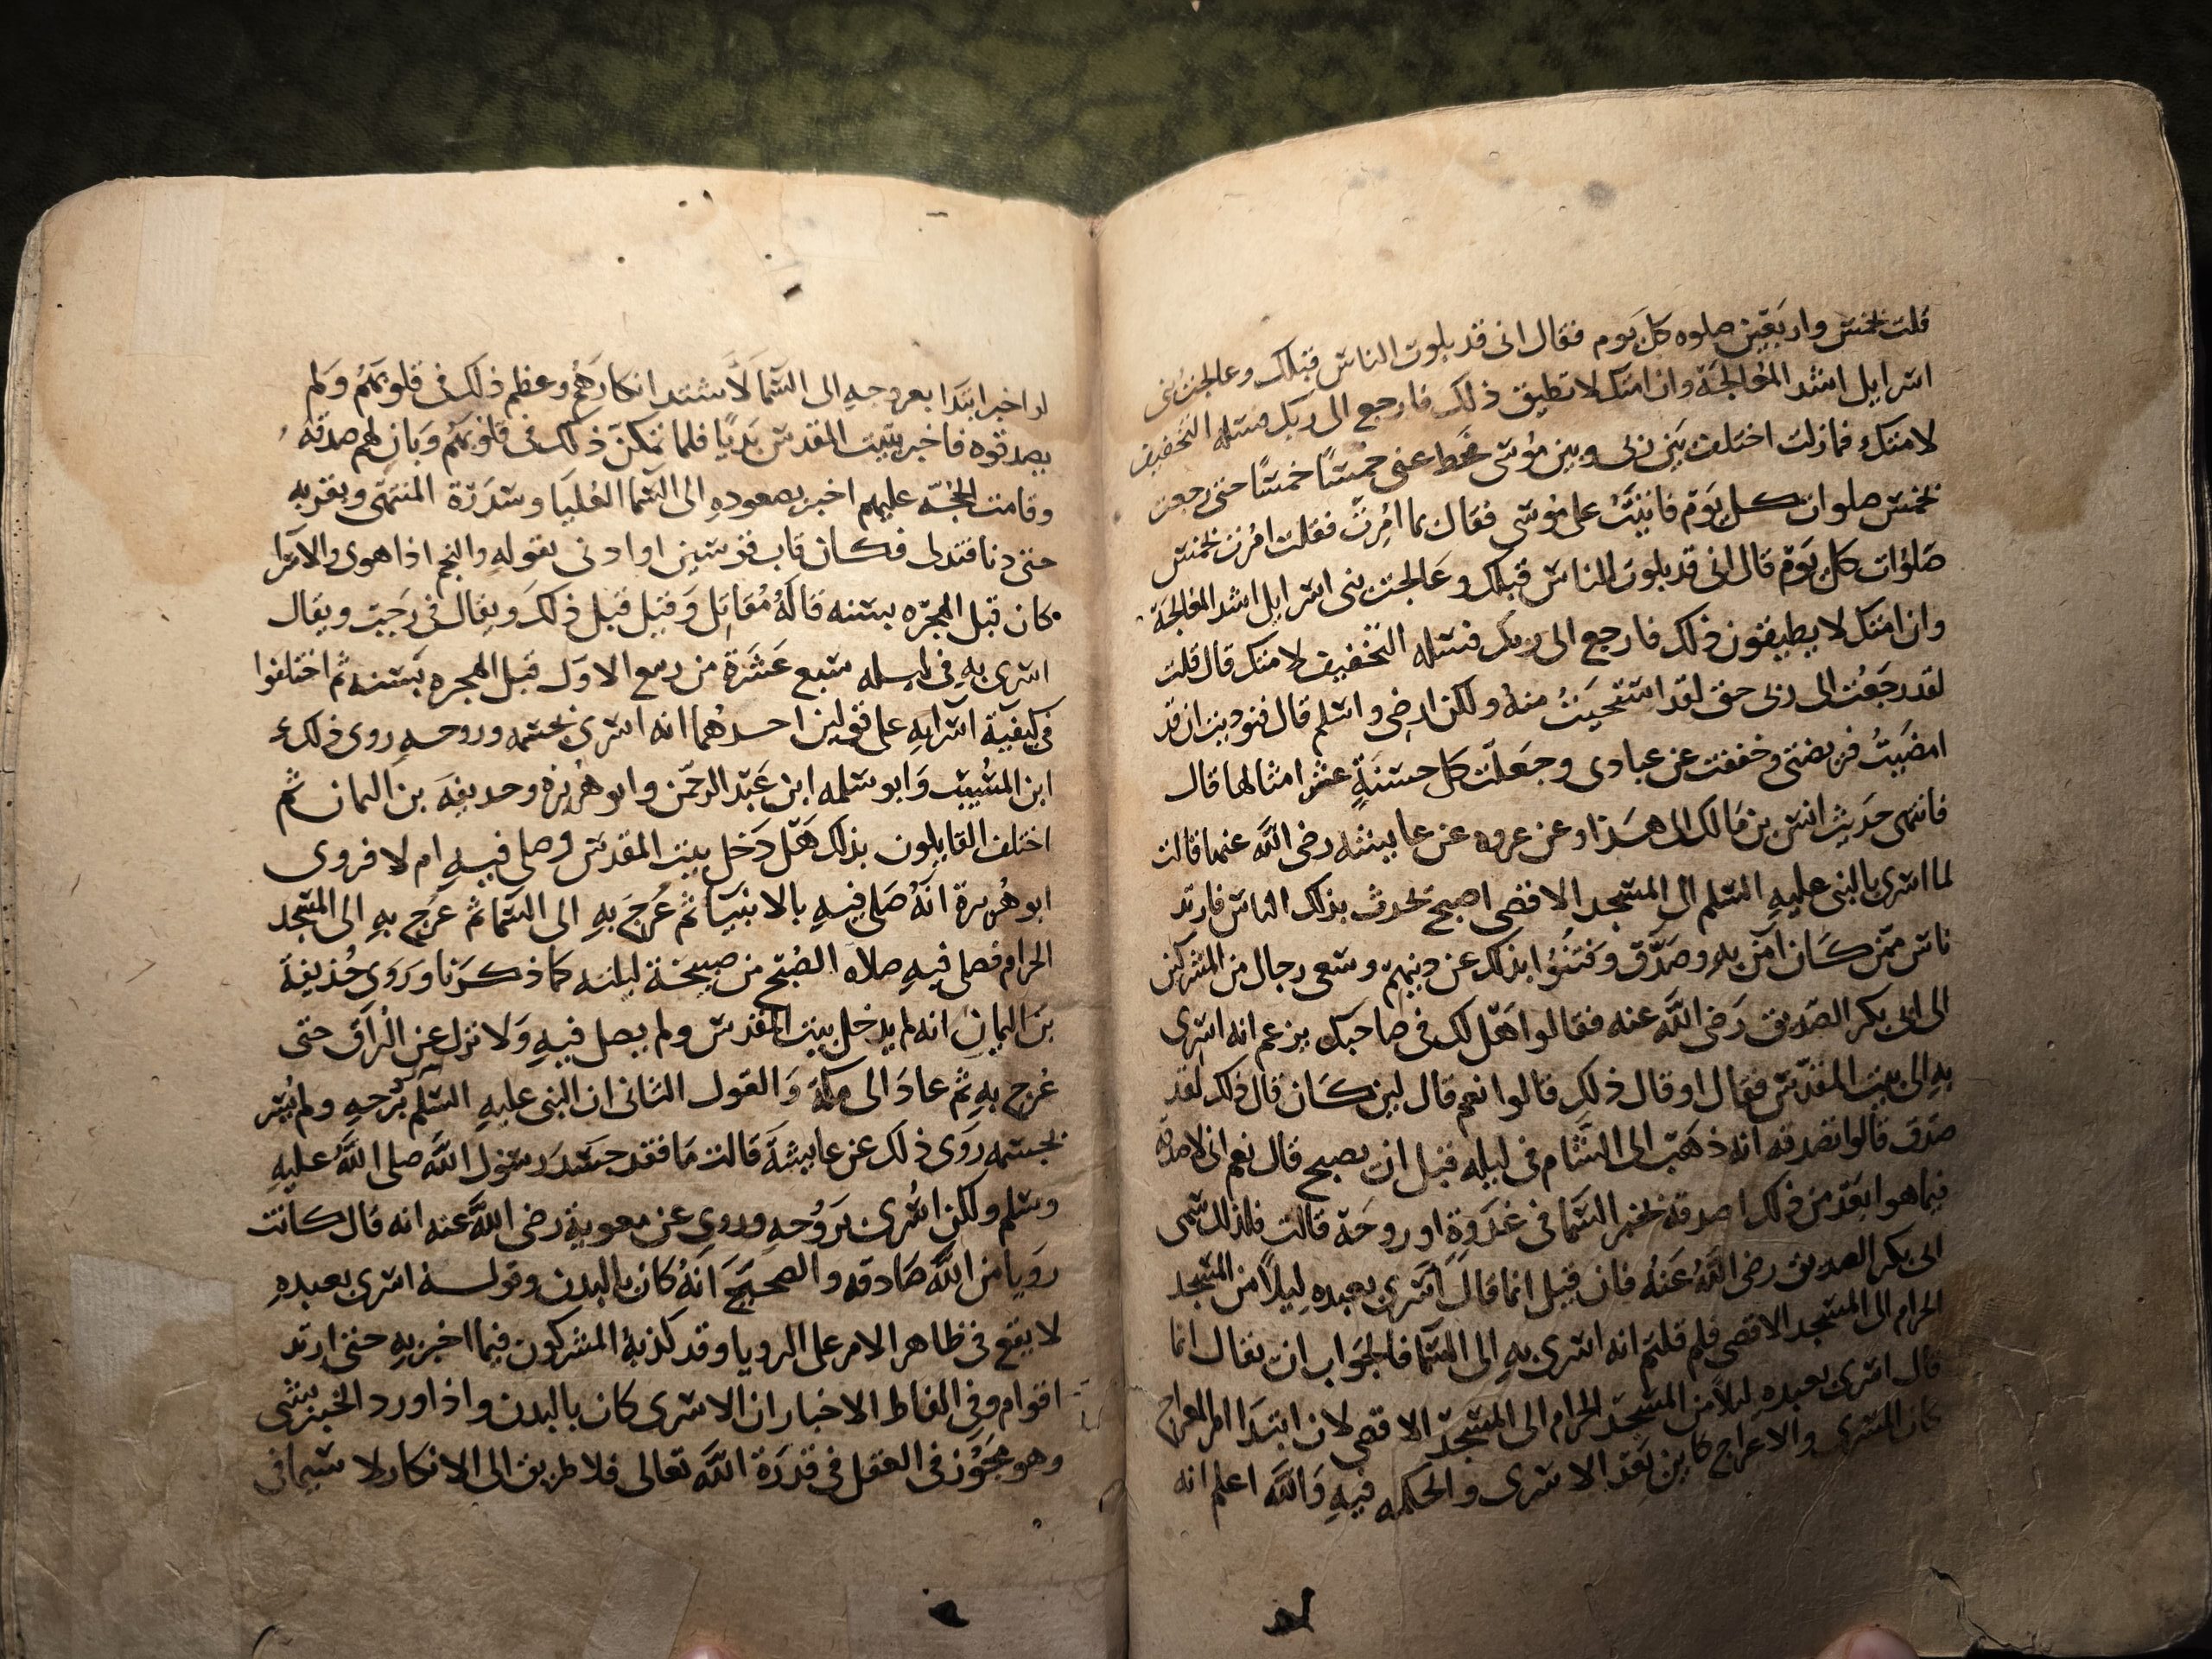 قلت بخمس واربعين صلوه كل يوم فقال انى قد بلوت الناس قبلك وعالجت بنى
اسرايل اشد المعالجة وان امتك لا تطيق ذلك فارجع الى ربك فسئله التخفيف
لامتك فمازلت اختلف بين ربى وبين موسى فحط عنى خمسًا خمسًا حتى رجعت
بخمس صلوات كل يوم فاتيت على موسى فقال بما امرت فقلت امرت بخمس
صلوات كل يوم قال انى قد بلوت الناس قبلك وعالجت بنى اسرايل اشد المعالجة
وان امتك لا يطيقون ذلك فارجع الى ربك فسئله التخفيف لامتك قال قلت
لقد رجعت الى ربى حتى لقد استحييت منه ولكن ارضى واسلم قال فنوديت ان قد
امضيت فريضتى وخففت عن عبادى وجعلت كل حسنة عشر امثالها قال
فانتهى حديث انس بن مالك الى هذا وعن عروه عن عايشه رضى الله عنها قالت
لما اسرى بالنبى عليه السلم الى المسجد الاقصى اصبح تحدث بذلك الناس فارتد
ناس ممن كان آمن به وصدق وفتنوا بذلك عن دينهم وسعى رجال من المشركين
الى ابى بكر الصديق رضى الله عنه فقالوا هل لك فى صاحبك يزعم انه اسرى
به الى بيت المقدس فقال او قال ذلك قالوا نعم قال لين كان قال ذلك لقد
صدق قالوا تصدقه انه ذهب الى الشام فى ليله قبل ان يصبح قال نعم انى لاصدقه
فيما هو ابعد من ذلك اصدقه بخبر السما فى غدوة او روحة قالت فلذلك سمى
ابى بكر الصديق رضى الله عنه فان قيل انما قال اسرى بعبده ليلاً من المسجد
الحرام الى المسجد الاقصى فلم قلتم انه اسرى به الى السما فالجواب ان يقال انما
قال اسرى بعبده ليلاً من المسجد الحرام الى المسجد الاقصى لان ابتدا امر المعراج
كان المسرى والاعراج كاين بعد الاسرى والحكمه فيه والله اعلم انه
لو اخبر ابتدا بعروجه الى السما لاشتد انكارهم وعظم ذلك فى قلوبهم ولم
يصدقوه فاخبر ببيت المقدس بديًا فلما تمكن ذلك فى قلوبهم وبان لهم صدقه
وقامت الحجّه عليهم اخبر بصعوده الى السما العليا وسدرة المنتهى وبقربه
حتى دنا فتدلى فكان قاب قوسين او ادنى بقوله والنجم اذا هوى والاسرا
كان قبل الهجره بسنه قاله مقاتل وقيل قبل ذلك ويقال فى رجب ويقال
اسرى به فى ليله سبع عشرة من ربيع الاول قبل الهجره بسنه ثم اختلفوا
فى كيفية اسرايه على قولين احدهما انه اسرى بجسمه وروحه روى ذلك
ابن المسيب وابو سلمه ابن عبد الرحمن وابو هريره وحديفه بن اليمان ثم
اختلف القايلون بذلك هل دخل بيت المقدس وصلى فيه ام لا فروى
ابو هريرة انه صلى فيه بالانبيا ثم عرج به الى السما ثم عرج به الى المسجد
الحرام فصلى فيه صلاه الصبح من صبيحة ليلته كما ذكرنا وروى حذيفة
بن اليمان انه لم يدخل بيت المقدس ولم يصل فيه ولا نزل عن البراق حتى
عرج به ثم عاد الى مكة والقول الثانى ان النبى عليه السلم بروحه ولم يسر
بجسمه روى ذلك عن عايشة قالت ما فقد جسد رسول الله صلى الله عليه
وسلم ولكن اسرى بروحه وروى عن معوية رضى الله عنه انه قال كانت
رويا من الله صادقه والصحيح انه كان بالبدن وقوله اسرى بعبده
لا يقع فى ظاهر الامر على الرويا وقد كذبه المشركون فيما اخبر به حتى ارتد
اقوام وفى الفاظ الاخبار ان الاسرى كان بالبدن واذا ورد الخبر بشى
وهو مجوز فى العقل فى قدرة الله تعالى فلا طريق الى الانكار لا سيما فى